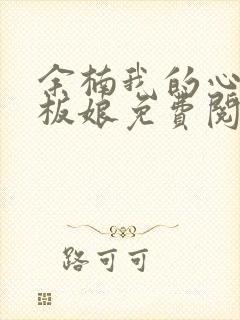 余楠我的心
板娘免费阅
路可可